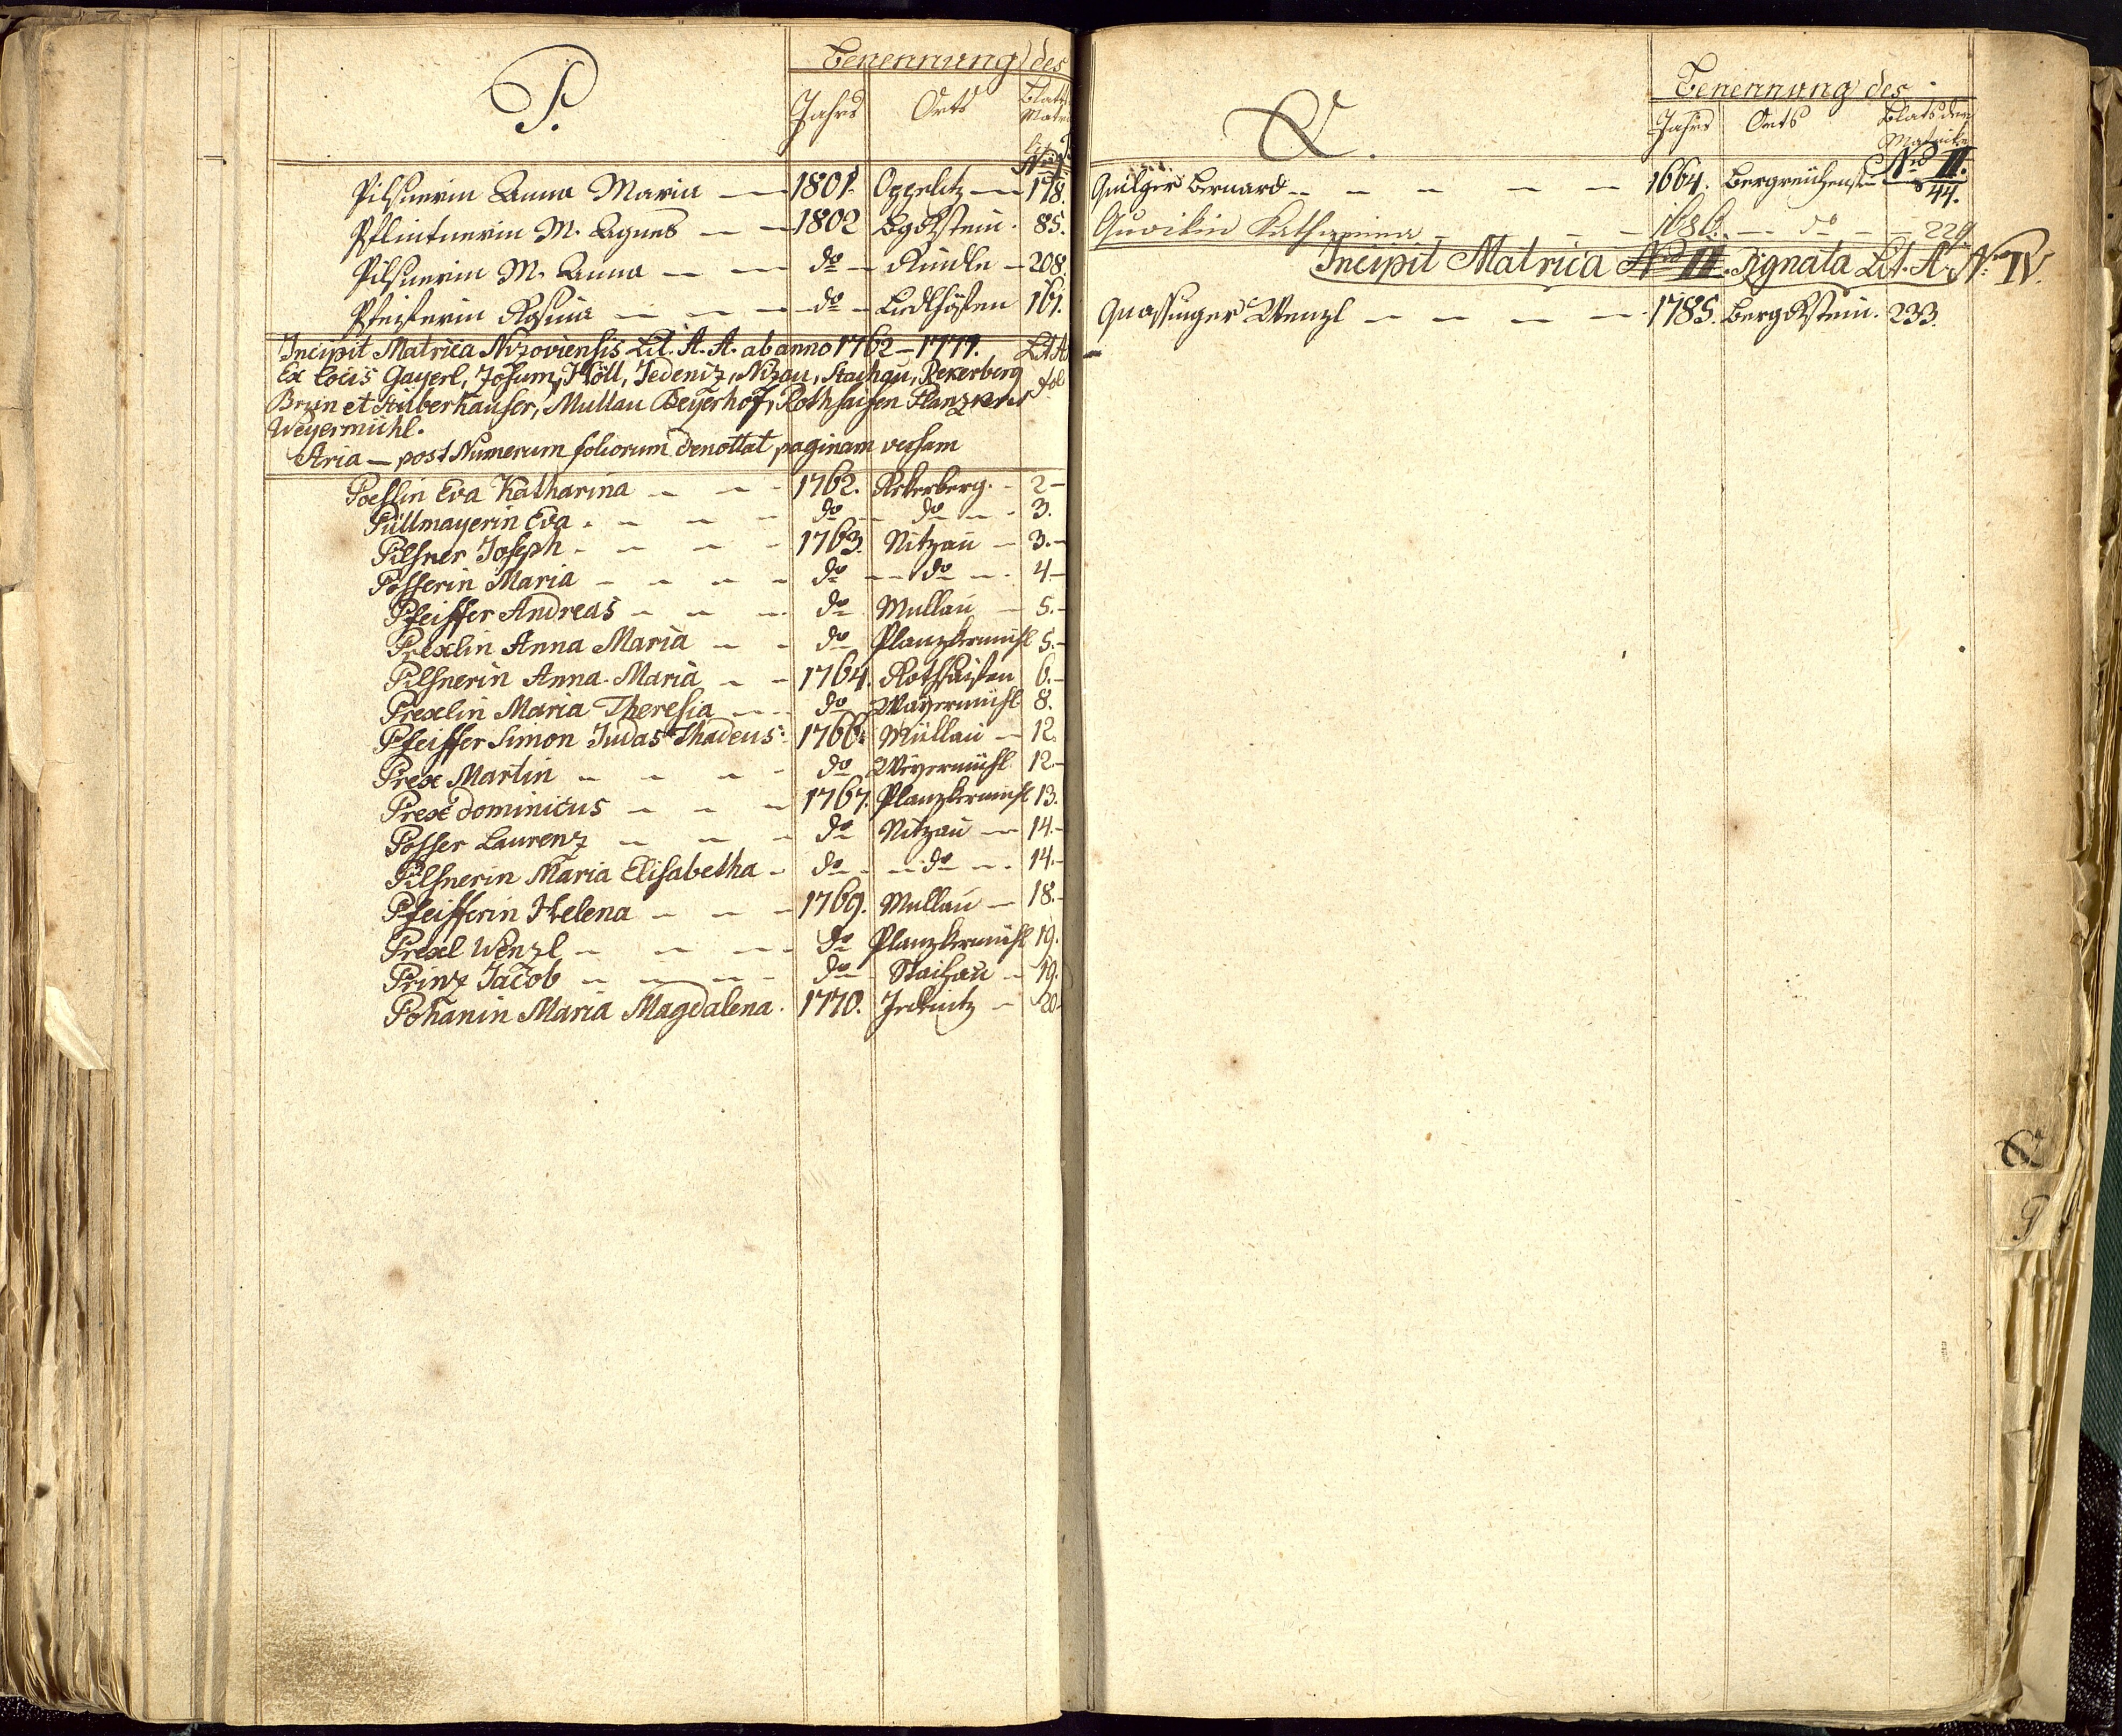 P.
Benennung des
Jahrs Orts Blats
Pilsnerin Anna Maria — 1801. Oppelitz — 178.
Pflintnerin M. Agnes — — 1802 Bgstein. 85.
Pilsnerin M. Anna — — do — 208.
Pfeisterin Rosina — — — do — 161.
Incipit Matrica Nizoviensis Lit. A. A. ab anno 1762 — 1779. Lit A
Ex locis Gayerl, Josum, Höll, Jedeniz, Nizau, Stachau, Rekerberg
Brzin et Haberhauser, Mullau Beyerhof, Rothsaisen Planzker
Weyermühl.
Stria — post Numerum foliorum denottat paginam versam
Poeslin Eva Katharina — — - 1762. Rekerberg. - 2 -
Püllmayerin Eva. — — — do — do — - 3.
Pilsner Joseph - — — - 1763. Nitzau — 3. -
Posserin Maria — — — - do — do — . 4 -
Pfeiffer Andreas — — — do Mullau — 5. -
Prexlin Anna Maria — - do Planzkermühl 5. -
Pilsnerin Anna Maria — - 1764. Rothsaisen 6. -
Prexlin Maria Theresia — - do Wayermühl 8.
Pfeiffer Simon Judas Thadeus: 1766. Müllau — 12.
Prex Martin — — — - do Weyermühl 12. -
Prex Dominicus — — — 1767. Planzkermühl 13.
Posser Laurenz — — — - do Nitzau — 14. -
Pilsnerin Maria Elisabetha - do - — do — . 14. -
Pfeifferin Helena — — — 1769. Mullau — 18. -
Prexl Wenzl — — — - do Planzkermühl 19.
Prinz Jacob — — — - do - Stachau — 19.
Pohanin Maria Magdalena. 1770. Jedenitz — 20
Q.
Benennung des
Jahrs Orts Blats der
Matricke
Nro III.
Quilger Bernard — — — — — 1664. Bergreichenstein 44.
Quvikin Katharina — — — — 1686. — do — 229
Incipit Matrica Nro III. Signata Lit. A. Nro IV.
Quassinger Wenzl — — — — 1785. Bergstein. 233.
Q